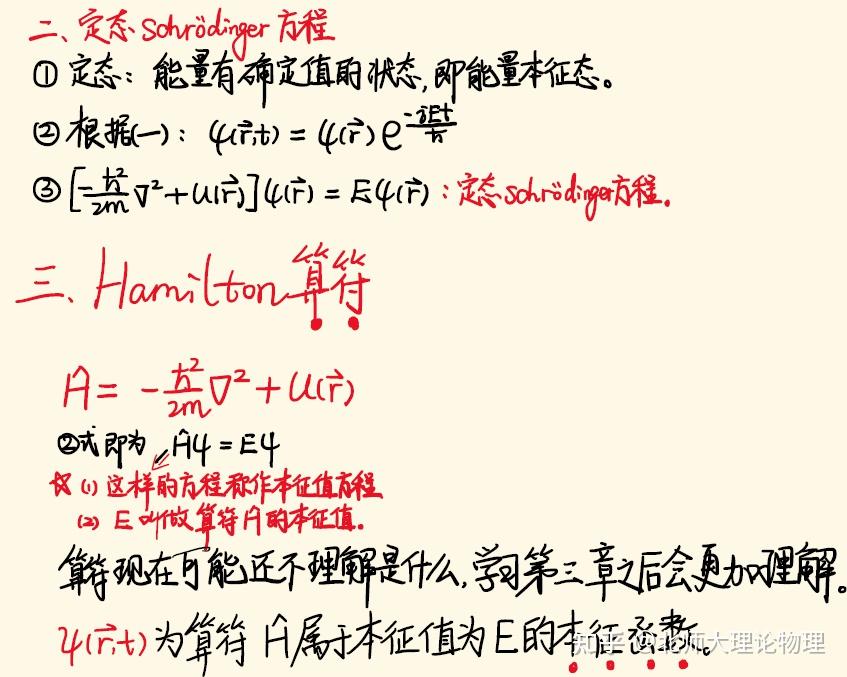 二、定态Schrödinger方程
① 定态：能量有确定值的状态，即能量本征态。
② 根据(一)：ψ(r⃗,t) = ψ(r⃗) e^{-iEt/ħ}
③ [-ħ²/2m ∇² + U(r⃗)]ψ(r⃗) = Eψ(r⃗)：定态Schrödinger方程。
三、Hamilton算符
Ĥ = -ħ²/2m ∇² + U(r⃗)
②式即为，Ĥψ = Eψ
☆ (1) 这样的方程称作本征值方程
(2) E叫做算符Ĥ的本征值。
算符现在可能还不理解是什么，学习第三章之后会更加理解。
ψ(r⃗,t)为算符Ĥ属于本征值为E的本征函数。
知乎 @北师大理论物理